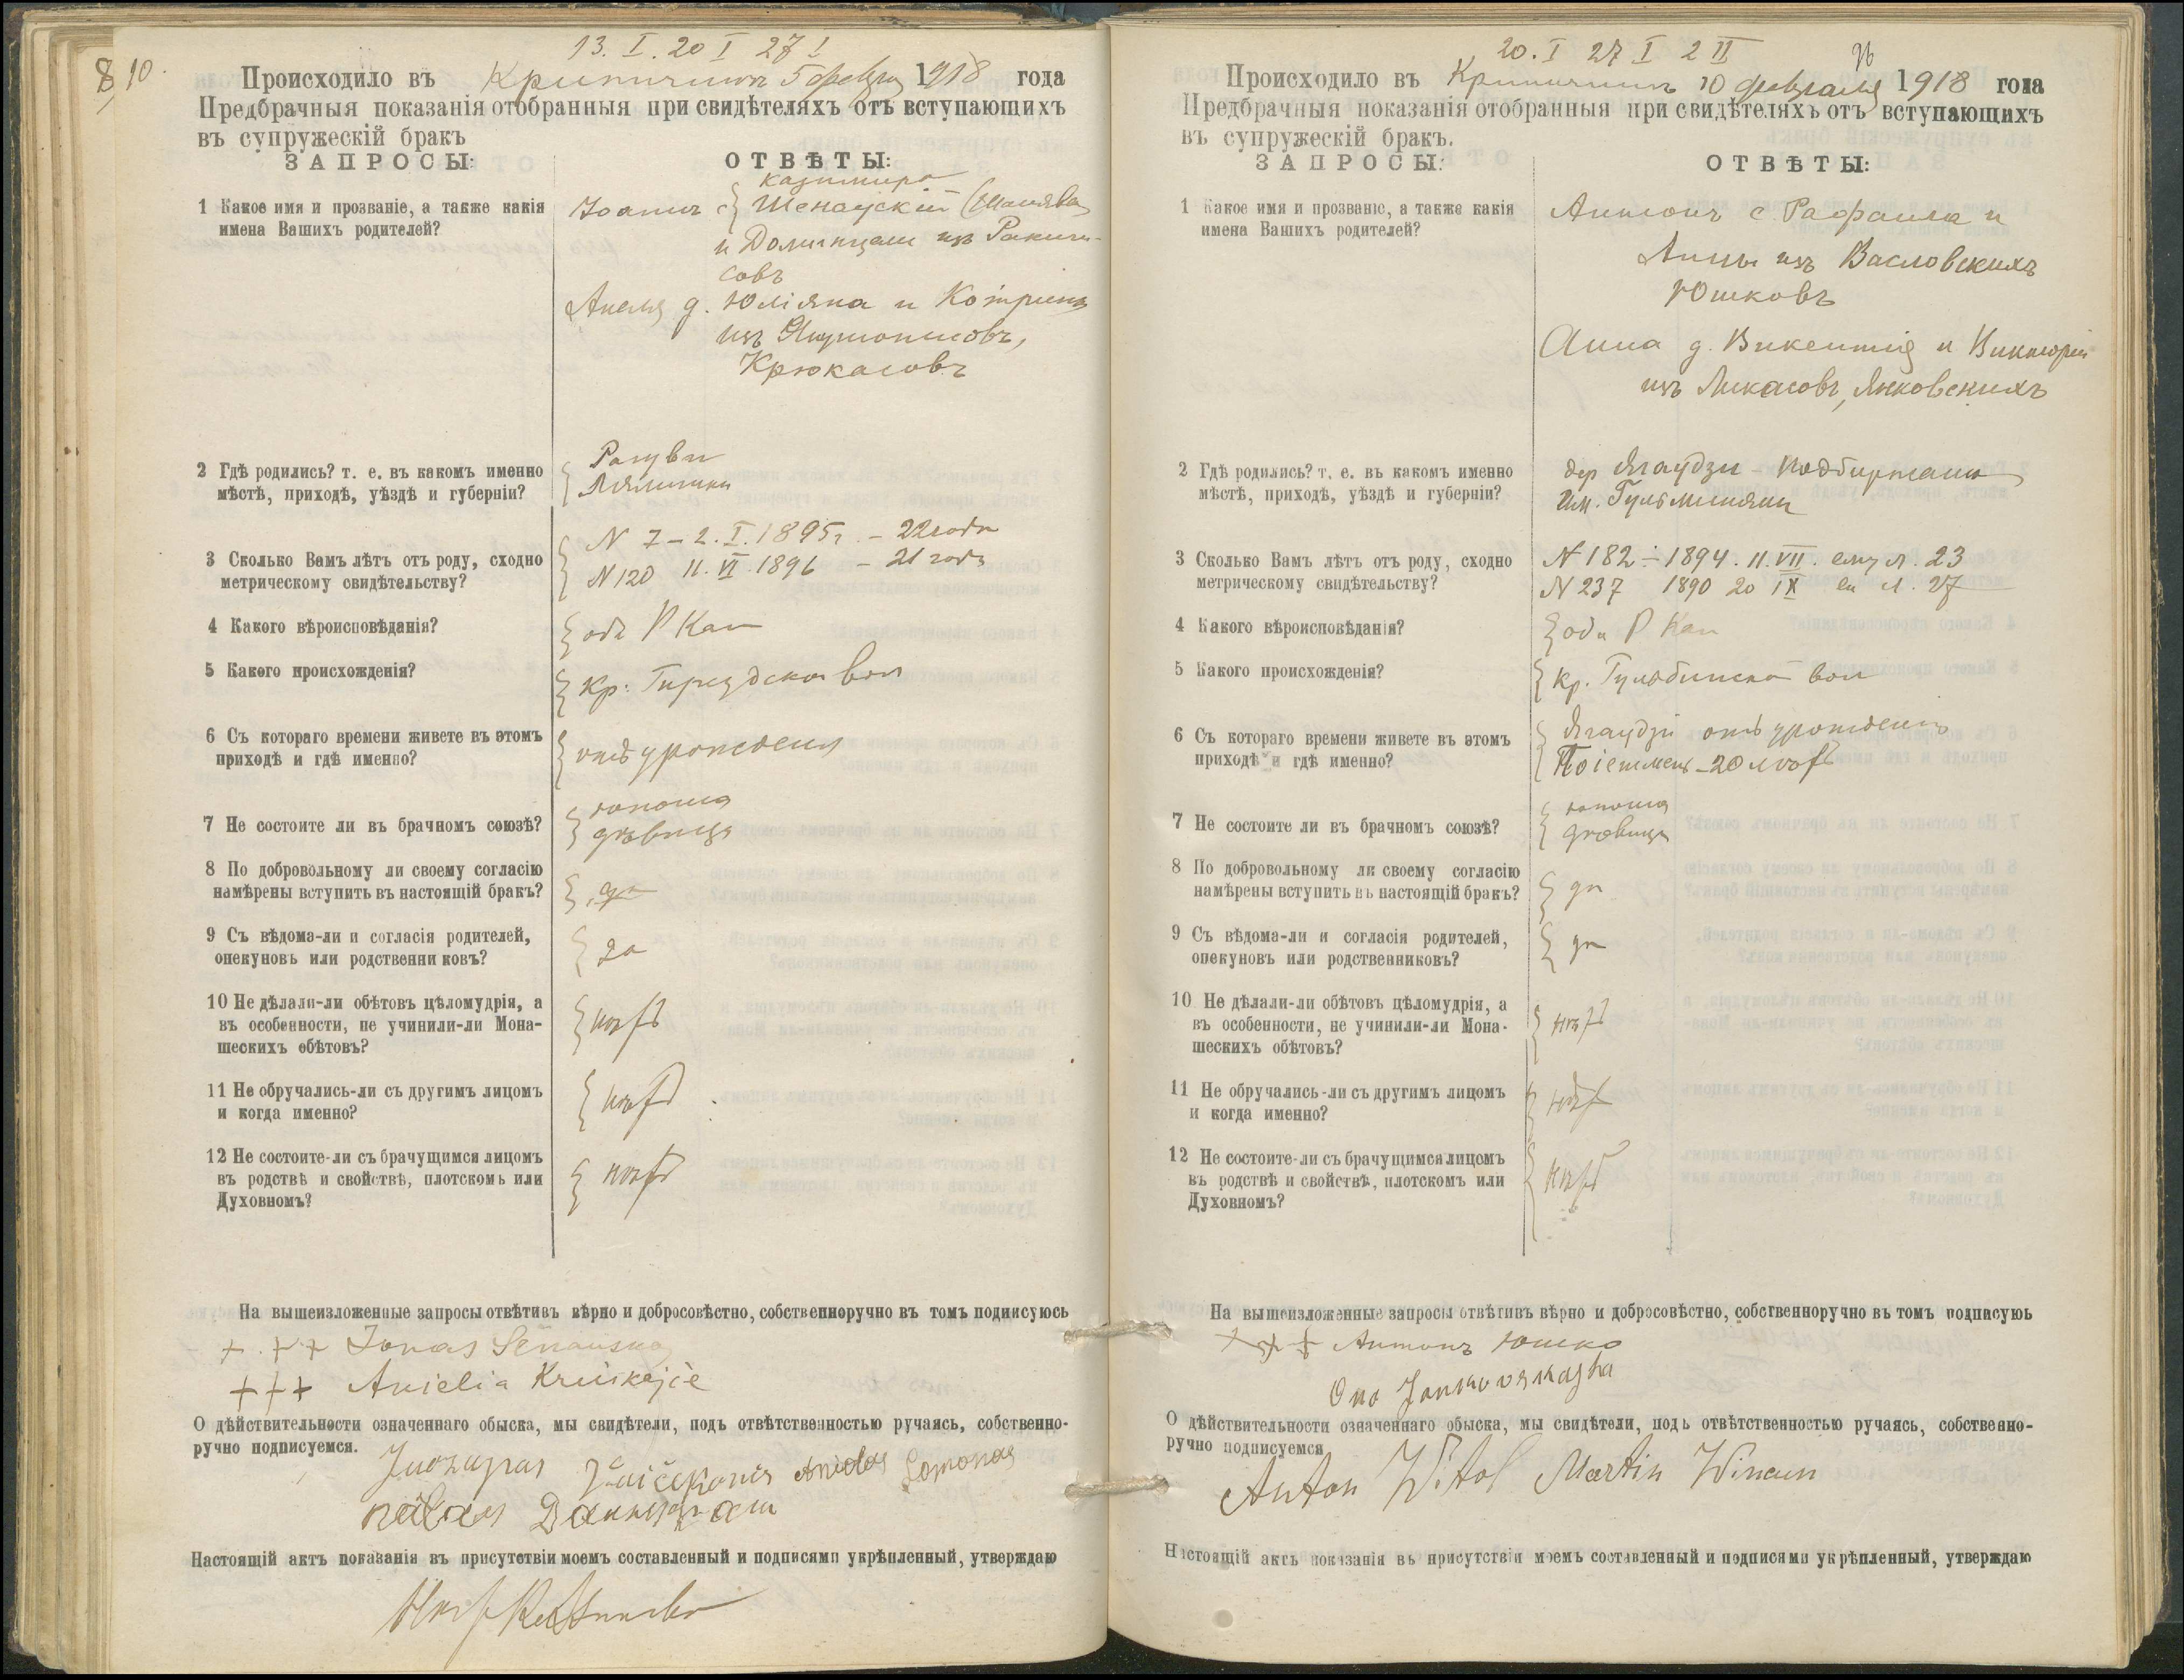 8, 10.
13. I. 20 I 27 I
Происходило въ Крипичинъ 5 февр 1918 года
Предбрачныя показанія отобранныя при свидѣтеляхъ отъ вступающихъ
въ супружескій бракъ
ЗАПРОСЫ:
ОТВѢТЫ:
1 Какое имя и прозваніе, а также какія
имена Вашихъ родителей?
Казимира
Іоаннъ с. Шенаускій
и Доминцели изъ
совъ
Анеля д. Юліяна и Котрины
изъ
Крюкасовъ
2 Гдѣ родились? т. е. въ какомъ именно
мѣстѣ, приходѣ, уѣздѣ и губерніи?
Рагуви
3 Сколько Вамъ лѣтъ отъ роду, сходно
метрическому свидѣтельству?
N 7 – 2. I. 1895 г. – 22 года
N 120 11. VI. 1896 – 21 годъ
4 Какого вѣроисповѣданія?
оба Р Кат
5 Какого происхожденія?
кр. вол
6 Съ котораго времени живете въ этомъ
приходѣ и гдѣ именно?
отъ урожденія
7 Не состоите ли въ брачномъ союзѣ?
юноша
дѣвица
8 По добровольному ли своему согласію
намѣрены вступить въ настоящій бракъ?
да
9 Съ вѣдома-ли и согласія родителей,
опекуновъ или родственниковъ?
да
10 Не дѣлали-ли обѣтовъ цѣломудрія, а
въ особенности, не учинили-ли Мона-
шескихъ обѣтовъ?
нѣтъ
11 Не обручались-ли съ другимъ лицомъ
и когда именно?
нѣтъ
12 Не состоите-ли съ брачущимся лицомъ
въ родствѣ и свойствѣ, плотскомъ или
Духовномъ?
нѣтъ
На вышеизложенные запросы отвѣтивъ вѣрно и добросовѣстно, собственноручно въ томъ подписуюсь
+ + + Jonas Senauskas
+ + + Anielia Kriukajcie
О дѣйствительности означеннаго обыска, мы свидѣтели, подъ отвѣтственностью ручаясь, собственно-
ручно подписуемся.
Juozupas
Настоящій актъ показанія въ присутствіи моемъ составленный и подписями укрѣпленный, утверждаю
20. I 27 I 2 II
Происходило въ Крипичинъ 10 февраля 1918 года
Предбрачныя показанія отобранныя при свидѣтеляхъ отъ вступающихъ
въ супружескій бракъ.
ЗАПРОСЫ:
ОТВѢТЫ:
1 Какое имя и прозваніе, а также какія
имена Вашихъ родителей?
Антонъ с. Рафаила и
Анны изъ Васловскихъ
Юшковъ
Анна д. Викентія и Викторіи
изъ Микасовъ, Янковскихъ
2 Гдѣ родились? т. е. въ какомъ именно
мѣстѣ, приходѣ, уѣздѣ и губерніи?
дер Ягаудзи – Подбиржанъ
им.
3 Сколько Вамъ лѣтъ отъ роду, сходно
метрическому свидѣтельству?
N 182 – 1894. 11. VII. ему л. 23
N 237 1890 20 IX ей л. 27
4 Какого вѣроисповѣданія?
оба Р Кат
5 Какого происхожденія?
кр. Гульбинской вол
6 Съ котораго времени живете въ этомъ
приходѣ и гдѣ именно?
Ягаудзи отъ урожденія
– 20 лѣтъ
7 Не состоите ли въ брачномъ союзѣ?
юноша
дѣвица
8 По добровольному ли своему согласію
намѣрены вступить въ настоящій бракъ?
да
9 Съ вѣдома-ли и согласія родителей,
опекуновъ или родственниковъ?
да
10 Не дѣлали-ли обѣтовъ цѣломудрія, а
въ особенности, не учинили-ли Мона-
шескихъ обѣтовъ?
нѣтъ
11 Не обручались-ли съ другимъ лицомъ
и когда именно?
нѣтъ
12 Не состоите-ли съ брачущимся лицомъ
въ родствѣ и свойствѣ, плотскомъ или
Духовномъ?
нѣтъ
На вышеизложенные запросы отвѣтивъ вѣрно и добросовѣстно, собственноручно въ томъ подписуюь
+ + + Антонъ Юшко
Ona Jankovskajta
О дѣйствительности означеннаго обыска, мы свидѣтели, подъ отвѣтственностью ручаясь, собственно-
ручно подписуемся
Anton Witol Martin Winaun
Настоящій актъ показанія въ присутствіи моемъ составленный и подписями укрѣпленный, утверждаю